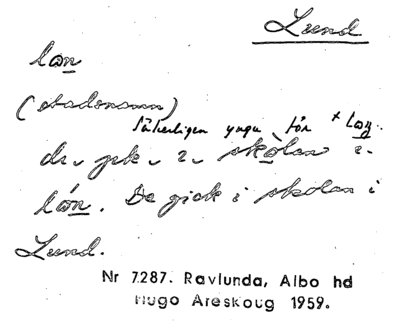 Lund
lon
(stadsnamn)
Säkerligen yngre för
skolan
De gick i skolan i
Lund.
Nr 7287. Ravlunda, Albo hd
Hugo Areskoug 1959.